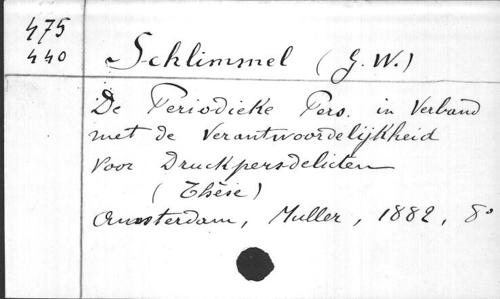 475
440
Schlimmel (G. W.)
De Periodieke Pers. in Verband
met de Verantwoordelijkheid
voor Drukpersdelicten
(Thèse)
Amsterdam, Muller, 1882, 8°